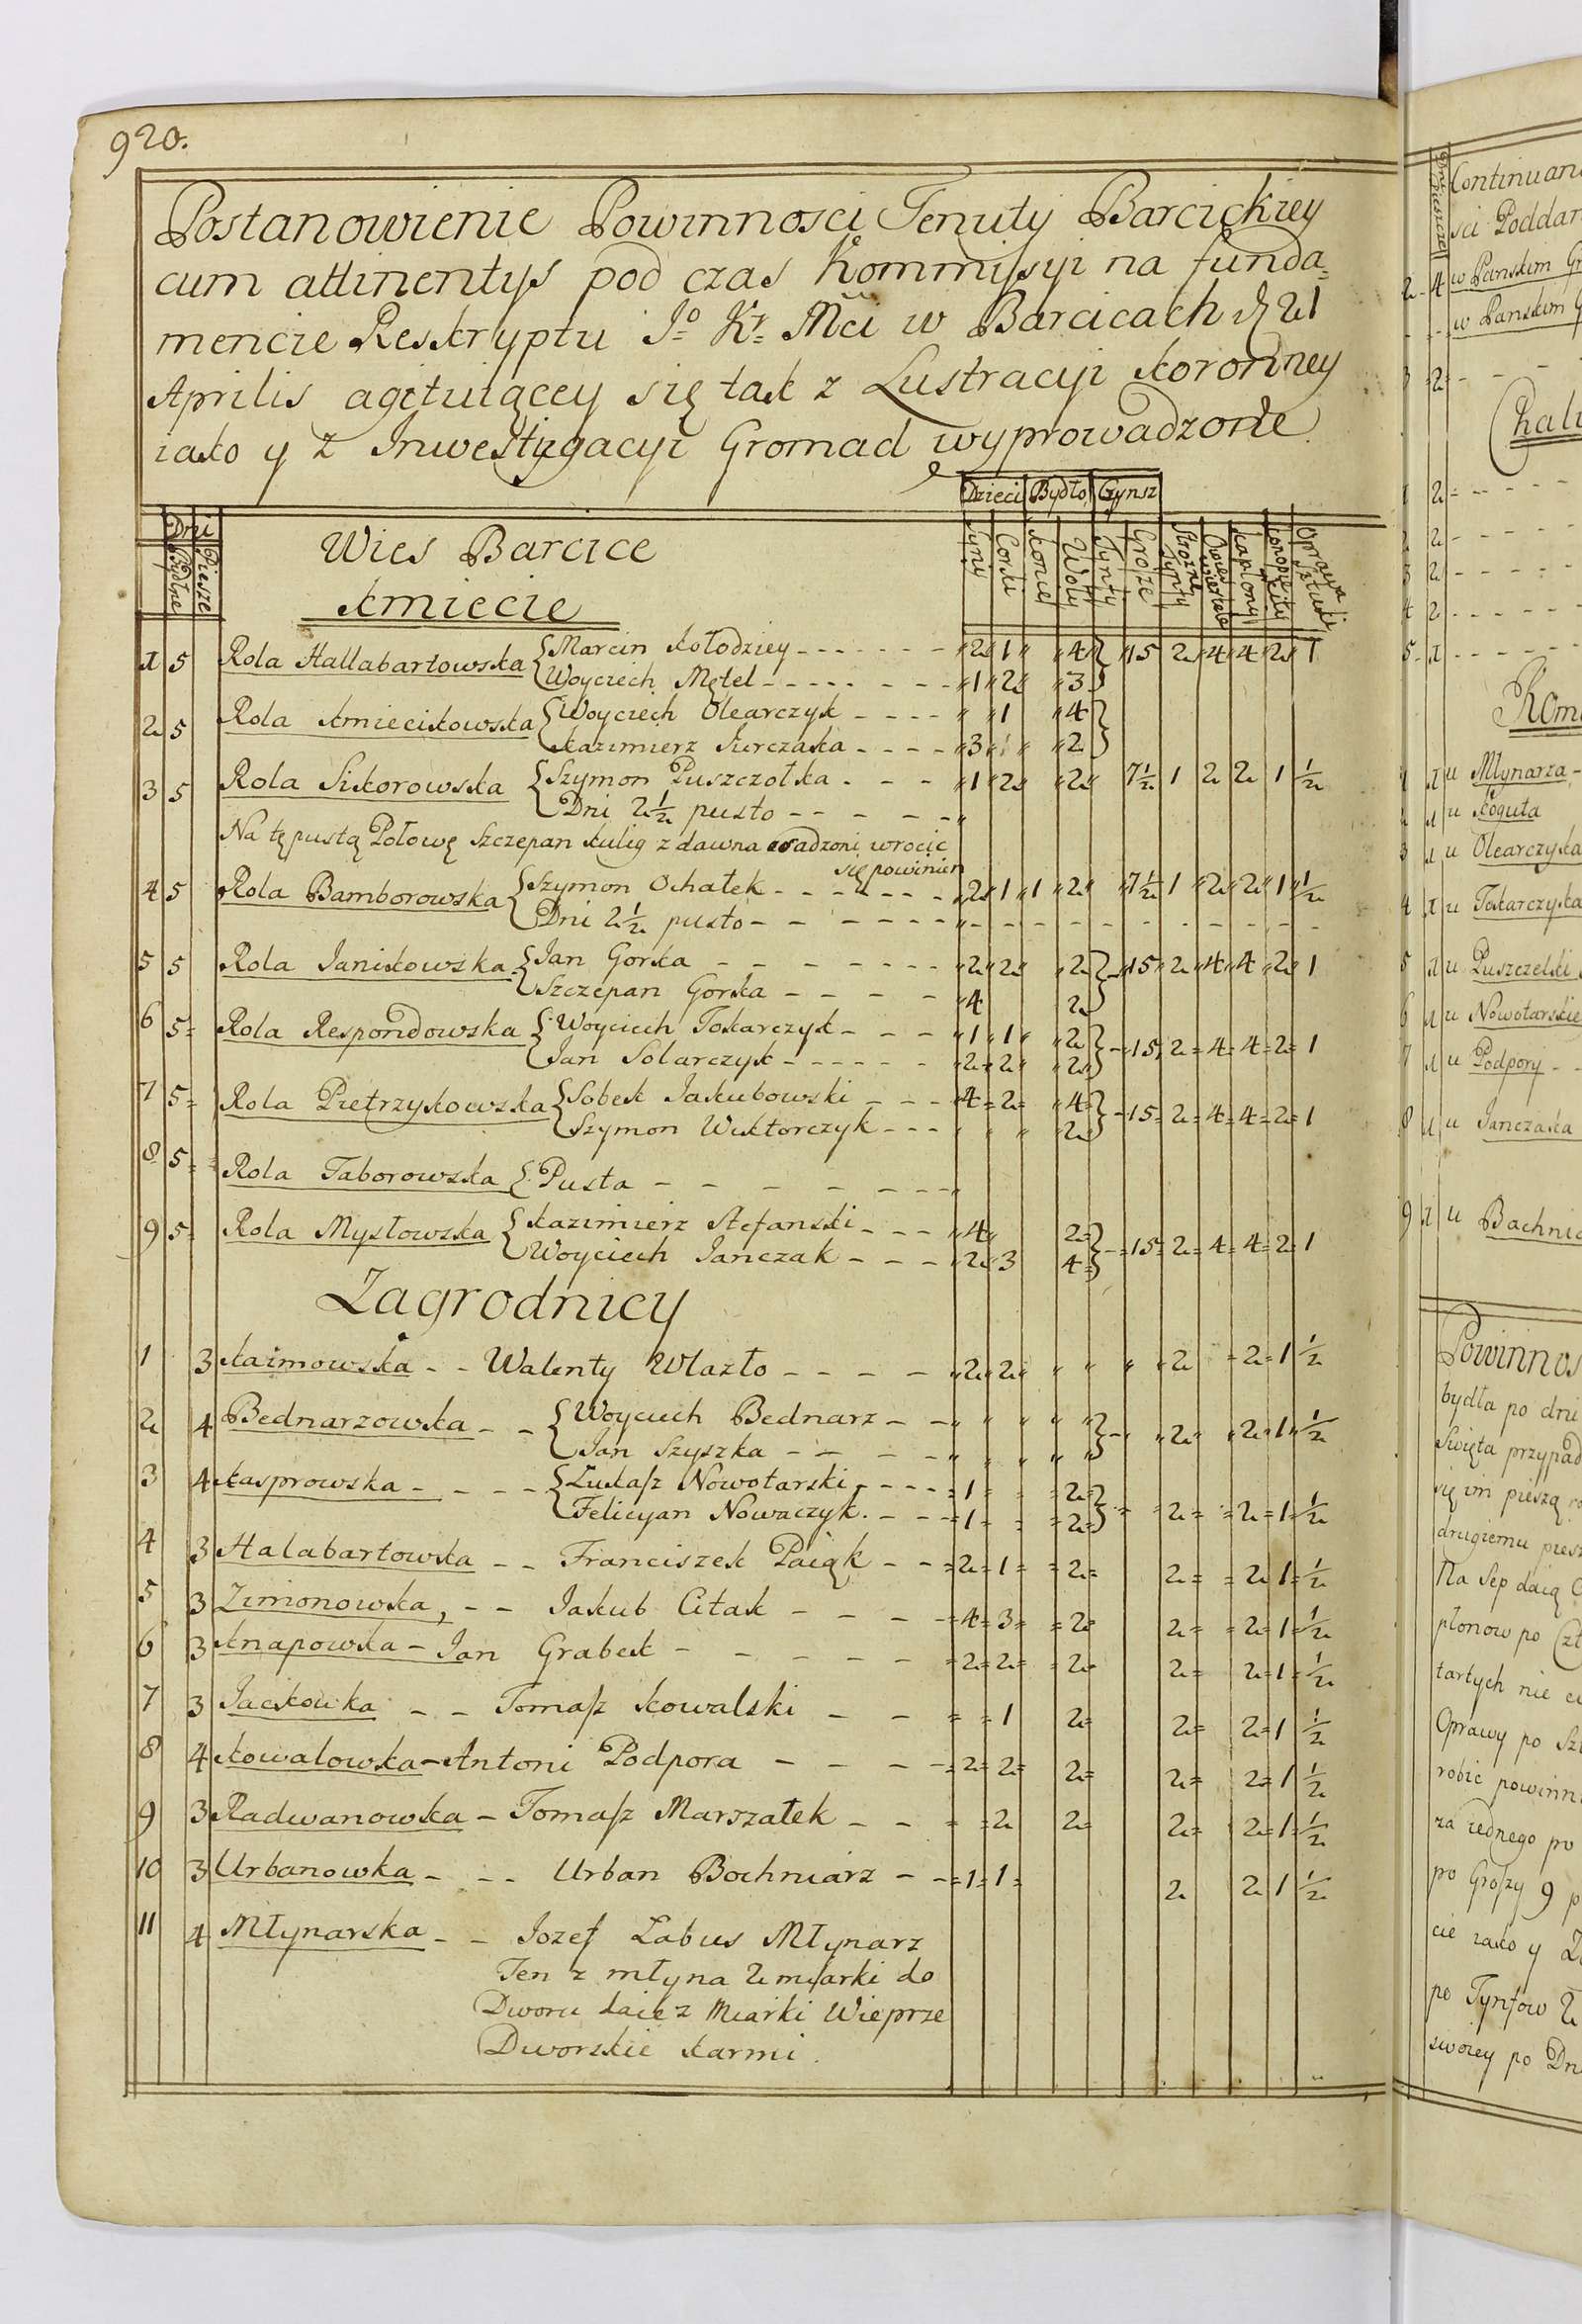 920.
Postanowienie Powinnosci Tenuty Barcickiey
cum attinentijs pod czas Kommissyi na funda=
mencie Reskryptu Jº Kr: Mci w Barcicach d 21
Aprilis agituiącey się tak z Lustracyi Koronney
iako y z Inwestygacyi Gromad wyprowadzone
Dzieci Bydło Czynsz
Dni Bydlne Piesze Wies Barcice Syny Corki Konie Woły Tynfy Grosze Strozne Tynfy Owies wiertele Kapłony Konopie Kity Oprawa Sztuki
Kmiecie
1 5 Rola Hallabartowska { Marcin Kołodziey 2 1 4 } 15 2 4 4 2 1
Woyciech Mętel 1 2 3
2 5 Rola Kmiecikowska { Woyciech Olearczyk 1 4 }
Kazimierz Kurczaka 3 1 2
3 5 Rola Sikorowska { Szymon Puszczołka 1 2 2 7½ 1 2 2 1 ½
Dni 2½ pusto
Na tę pustą Połowę Szczepan Kulig z dawna osadzoni wrocic
się powinien
4 5 Rola Bamborowska { Szymon Ochałek 2 1 1 2 7½ 1 2 2 1 ½
Dni 2½ pusto
5 5 Rola Janikowska { Jan Gorka 2 2 2 } 15 2 4 4 2 1
Szczepan Gorka 4 2
6 5 Rola Respondowska { Woyciech Tokarczyk 1 1 2 } 15 2 4 4 2 1
Jan Solarczyk 2 2 2
7 5 Rola Pietrzykowska { Sobek Jakubowski 4 2 4 } 15 2 4 4 2 1
Szymon Wiktorczyk 2
8 5 Rola Taborowska { Pusta
9 5 Rola Mysłowska { Kazimierz Stefanski 4 2 } 15 2 4 4 2 1
Woyciech Janczak 2 3 4
Zagrodnicy
1 3 Kaimowska - - Walenty Wlazło 2 2 2 2 1 ½
2 4 Bednarzowska - - { Woyciech Bednarz } 2 2 1 ½
Jan Szyszka
3 4 Kasprowska - - - - { Łukasz Nowotarski 1 2 } 2 2 1 ½
Felicyan Nowaczyk 1 2
4 3 Halabartowska - - Franciszek Paiąk 2 1 2 2 2 1 ½
5 3 Zimonowska, - - Jakub Citak 4 3 2 2 2 1 ½
6 3 Knapowska - Jan Grabek 2 2 2 2 2 1 ½
7 3 Jackowka - - Tomasz Kowalski 1 2 2 2 1 ½
8 4 Kowalowska - Antoni Podpora 2 2 2 2 2 1 ½
9 3 Radwanowska - Tomasz Marszałek 2 2 2 2 1 ½
10 3 Urbanowka - - - Urban Bochniarz 1 1 2 2 1 ½
11 4 Młynarska - - Jozef Łabus Młynarz
Ten z młyna 2 miarki do
Dworu daie z Miarki Wieprze
Dworskie karmi.
Continuan
sci Poddan
2 4 w Panskim Gr
w Panskim G
3 2
Chału
1 2
2 2
3 2
4 2
5 1
Kom
1 1 u Młynarza
2 1 u Koguta
3 1 u Olearczyka
4 1 u Tokarczyka
5 1 u Puszczelki
6 1 u Nowotarskie
7 1 u Podpory
8 1 u Janczaka
9 1 u Bachnia
Powinnos
bydła po dni
Swięta przypad
się im pieszą ro
drugiemu piesz
Na Sep daią
płonow po Czt
tartych nie
Oprawy po Szt
robic powinni
za iednego po
po Groszy 9 p
cie iako y
po Tynfow 2
swoiey po Dn